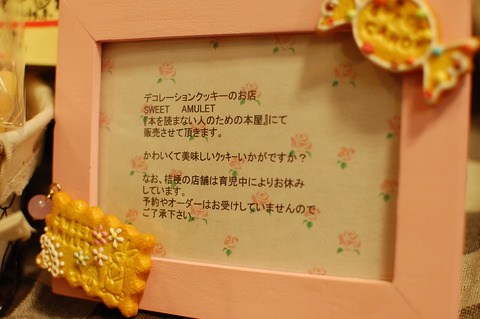 デコレーションクッキーのお店
SWEET AMULET
『本を読まない人のための本屋』にて
販売させて頂きます。
かわいくて美味しいクッキーいかがですか？
なお、桔梗の店舗は育児中によりお休み
しています。
予約やオーダーはお受けしていませんので
ご了承下さい。